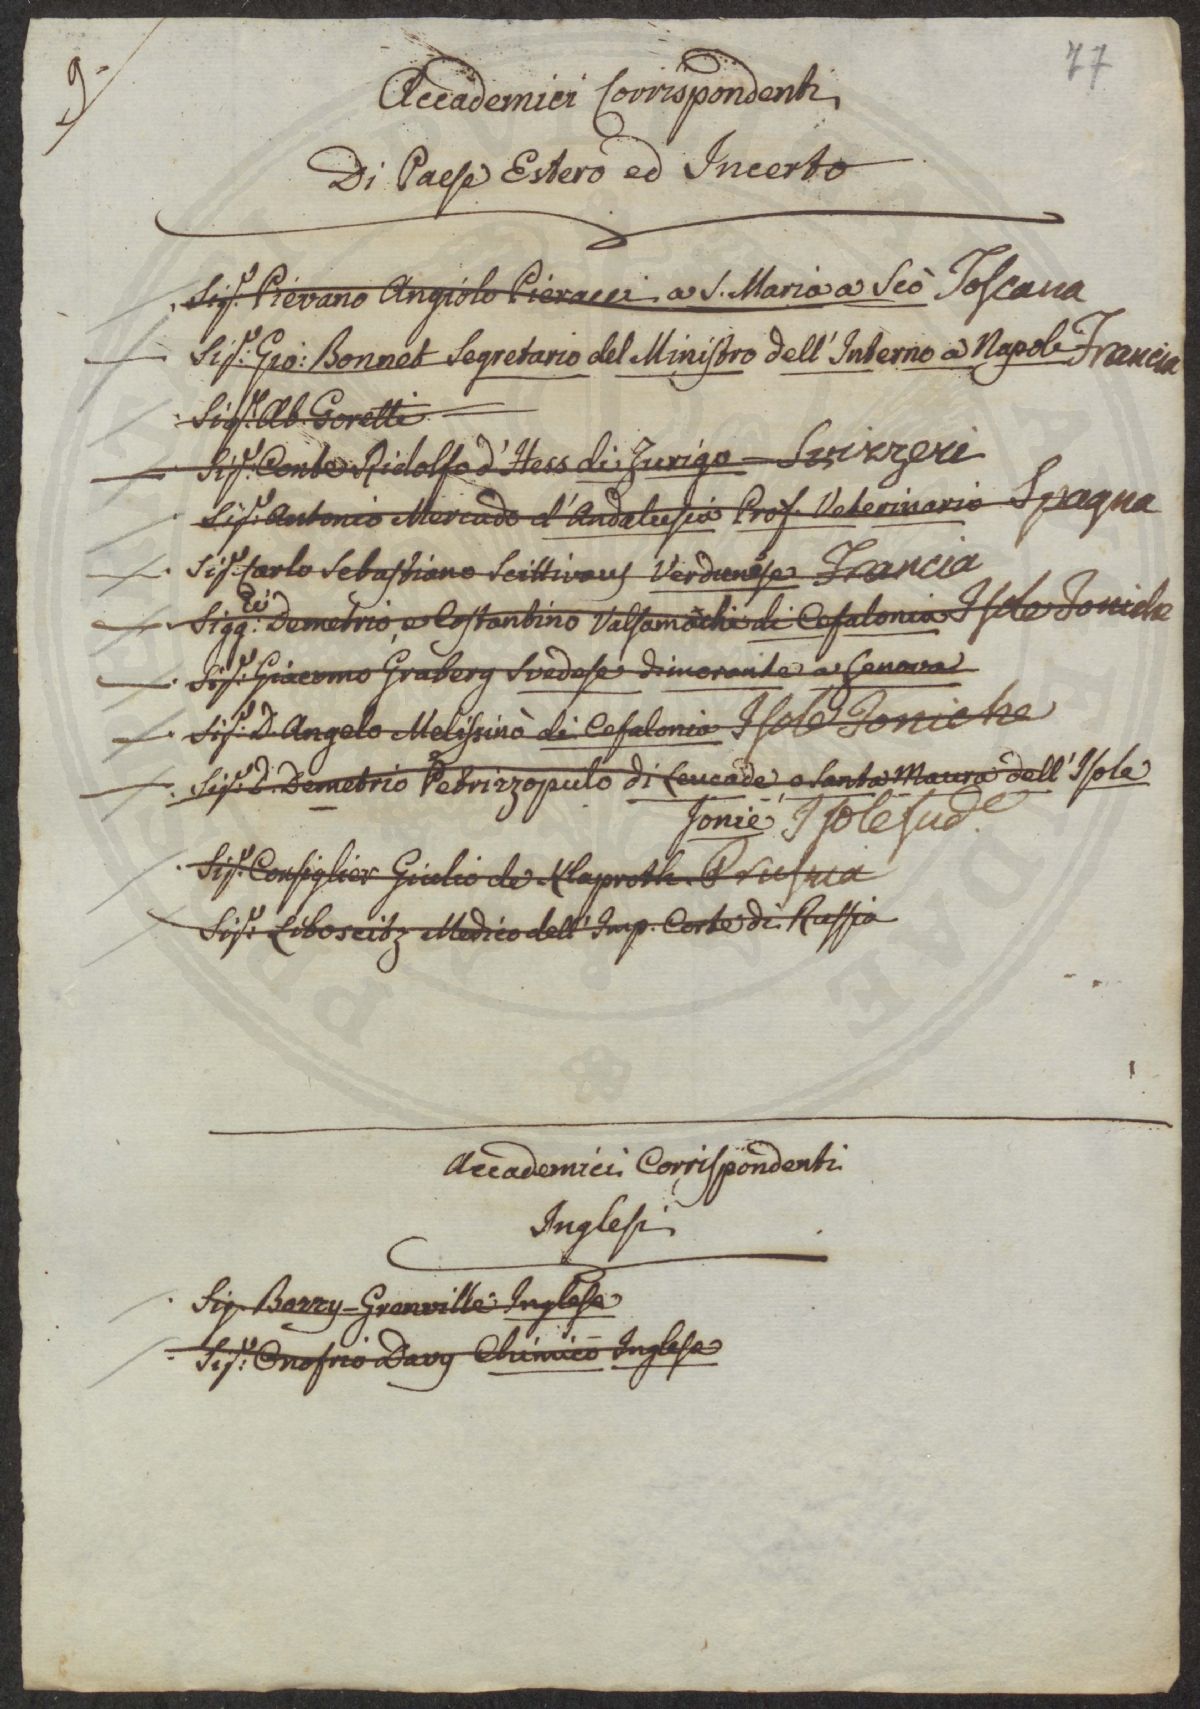 9.
77
Accademici Corrispondenti
Di Paese Estero ed Incerto
Sig.r Pievano Angiolo Pieracci a S. Maria a Scò Toscana
Sig.r Gio: Bonnet Segretario del Ministro dell' Interno a Napoli Francia
Sig.r Ab. Goretti
Sig.r Conte Ridolfo d'Hess di Zurigo - Svizzeri
Sig.r Antonio Mercado d'Andalusia Prof. Veterinario Spagna
Sig.r Carlo Sebastiano Verdunese Francia
Sigg.ri Demetrio, e Costantino Valsamachi di Cefalonia Isole Joniche
Sig.r Giacomo Graberg Svedese dimorante a Genova
Sig.r D. Angelo Melissinò di Cefalonia Isole Joniche
Sig.r D. Demetrio Petrizzopulo di Leucade, o Santa Maura dell' Isole
Jonie, Isole sud.e
Sig.r Consiglier Giulio de Klaproth. Prussia
Sig.r Liboscitz Medico dell' Imp. Corte di Russia
Accademici Corrispondenti
Inglesi
Sig. Bozzy-Granville Inglese
Sig.r Onofrio Davy Chimico Inglese